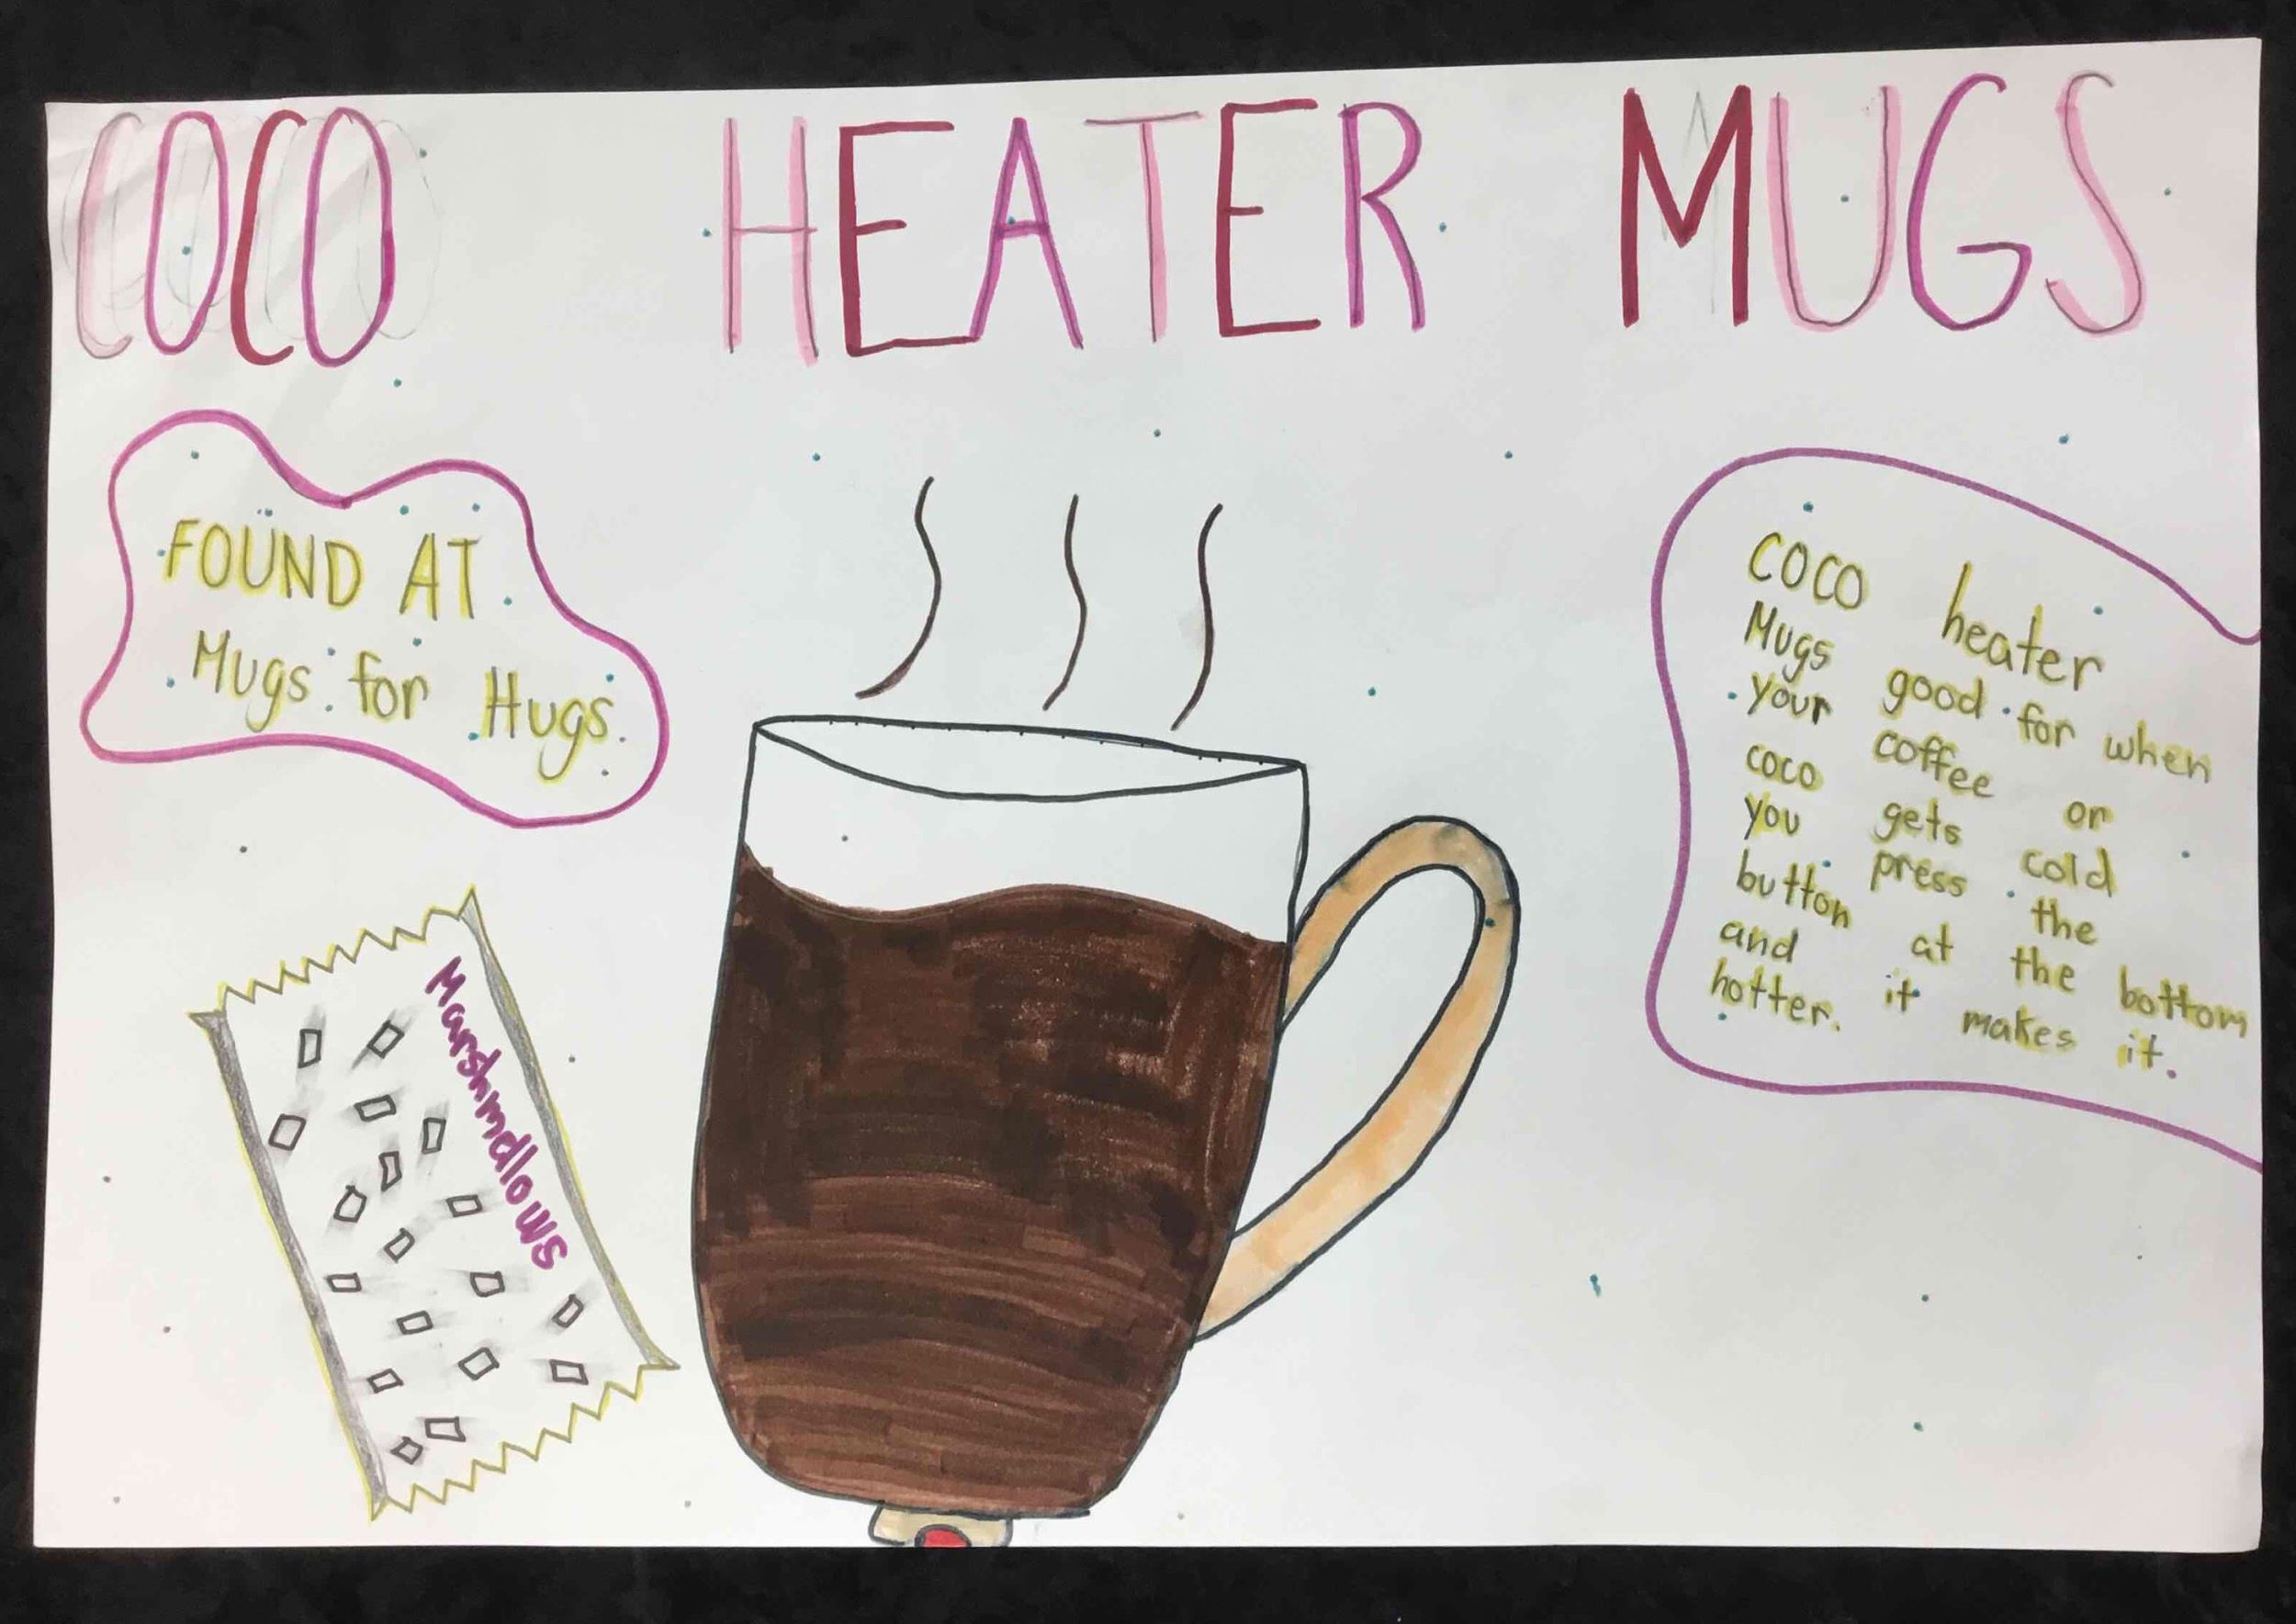 COCO HEATER MUGS
FOUND AT
Mugs for Hugs.
coco heater
Mugs good for when
your coffee or
coco gets cold
you press the
button at the bottom
and it makes it.
hotter.
Marshmallows